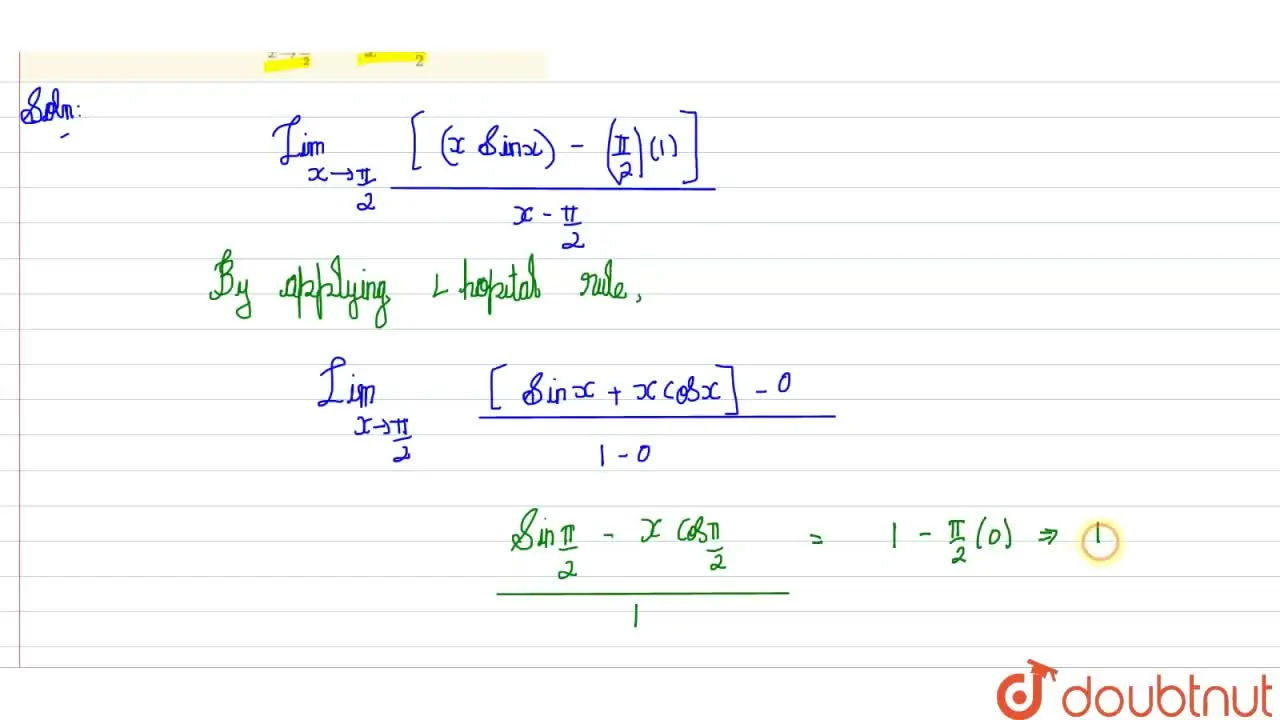 2
2
Soln:
Lim x→π/2 [(x Sinx) - (π/2)(1)] / x - π/2
By applying L hopital rule,
Lim x→π/2 [Sinx + x cosx] - 0 / 1 - 0
Sin π/2 - x cos π/2 / 1 = 1 - π/2 (0) ⇒ 1
doubtnut